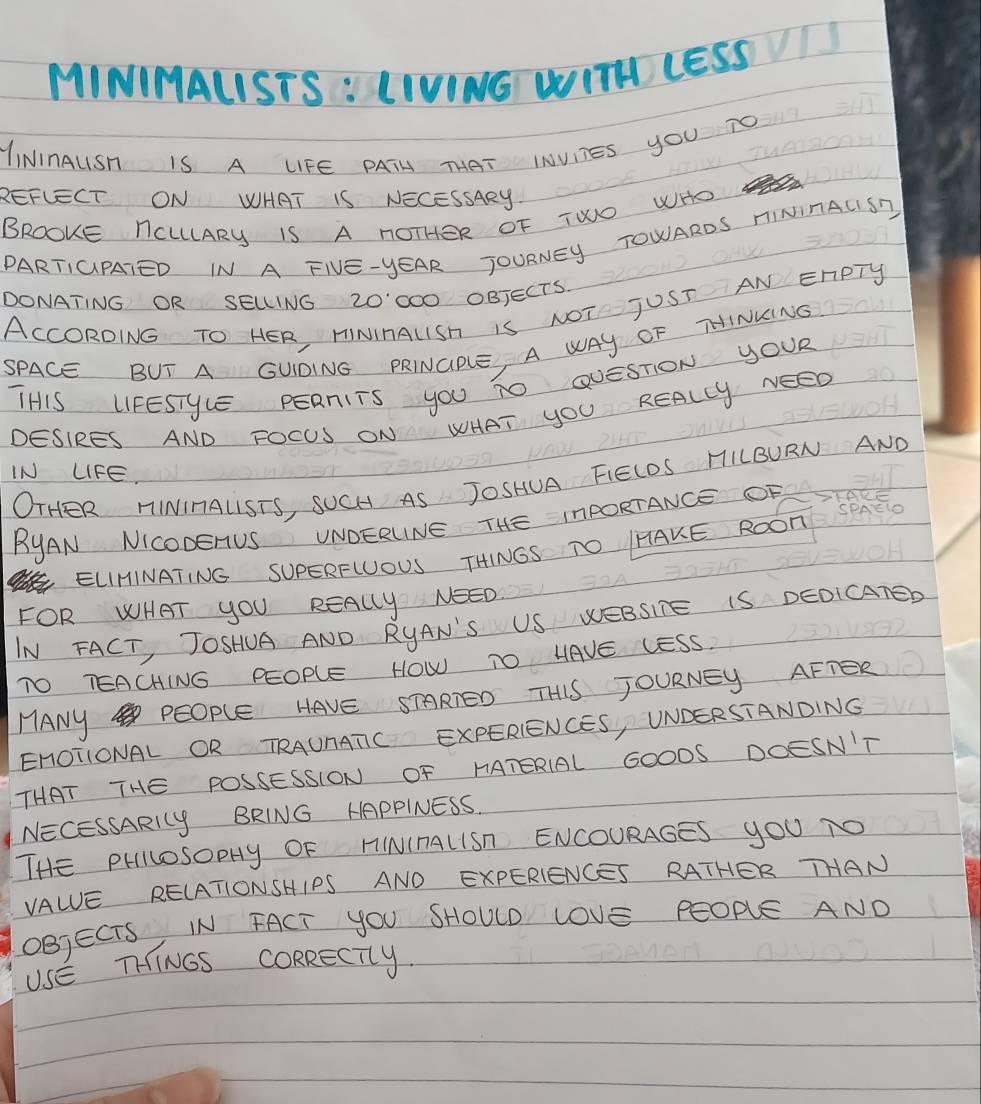 MINIMALISTS: LIVING WITH LESS
MINIMALISM IS A LIFE PATH THAT INVITES YOU TO
REFLECT ON WHAT IS NECESSARY.
BROOKE MCLLLARY IS A MOTHER OF TWO WHO
PARTICIPATED IN A FIVE-YEAR JOURNEY TOWARDS MINIMALISM,
DONATING OR SELLING 20'000 OBJECTS.
ACCORDING TO HER, MINIMALISM IS NOT JUST AN EMPTY
SPACE BUT A GUIDING PRINCIPLE, A WAY OF THINKING
THIS LIFESTYLE PERMITS YOU TO QUESTION YOUR
DESIRES AND FOCUS ON WHAT YOU REALLY NEED
IN LIFE.
OTHER MINIMALISTS, SUCH AS JOSHUA FIELDS MILBURN AND
RYAN NICODEMUS UNDERLINE THE IMPORTANCE OF
ELIMINATING SUPERFLUOUS THINGS TO MAKE ROOM SPAZIO
FOR WHAT YOU REALLY NEED
IN FACT, JOSHUA AND RYAN'S US WEBSITE IS DEDICATED
TO TEACHING PEOPLE HOW TO HAVE LESS.
MANY PEOPLE HAVE STARTED THIS JOURNEY AFTER
EMOTIONAL OR TRAUMATIC EXPERIENCES, UNDERSTANDING
THAT THE POSSESSION OF MATERIAL GOODS DOESN'T
NECESSARILY BRING HAPPINESS.
THE PHILOSOPHY OF MINIMALISM ENCOURAGES YOU TO
VALUE RELATIONSHIPS AND EXPERIENCES RATHER THAN
OBJECTS, IN FACT YOU SHOULD LOVE PEOPLE AND
USE THINGS CORRECTLY.